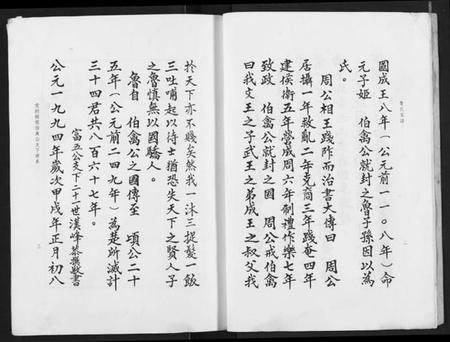 魯氏宗譜
國成王八年(公元前一一〇八年)命
元子姬 伯禽公就封之魯子孫因以為
氏。
周公相王踐阼而治書大傳曰 周公
居攝一年救亂二年克商三年踐奄四年
建侯衛五年營成周六年制禮作樂七年
致政 伯禽公就封之國 周公戒伯禽
曰我文王之子武王之弟成王之叔父我
於天下亦不賤矣然我一沐三捉髮一飯
三吐哺起以待士猶恐失天下之賢人子
之魯慎無以國驕人。
魯自 伯禽公之國傳至 頃公二十
五年(公元前二四九年)為楚所滅計
三十四君共八百六十七年。
富五公天下二十一世漢峰恭撰敬書
公元一九九四年歲次甲戌年正月初八